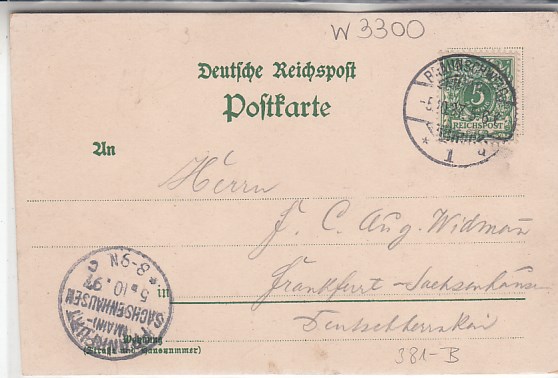 W 3300
Deutsche Reichspost
Postkarte
BRAUNSCHWEIG
-5.10.97
1
5
REICHSPOST
An
Herrn
J. C. Aug. Widmann
in Frankfurt-Sachsenhausen
Deutschherrnkai
8-9N
5.10.97
(MAIN)-
SACHSENHAUSEN
FRANKFURT
Wohnung
(Straße und Hausnummer)
381-B